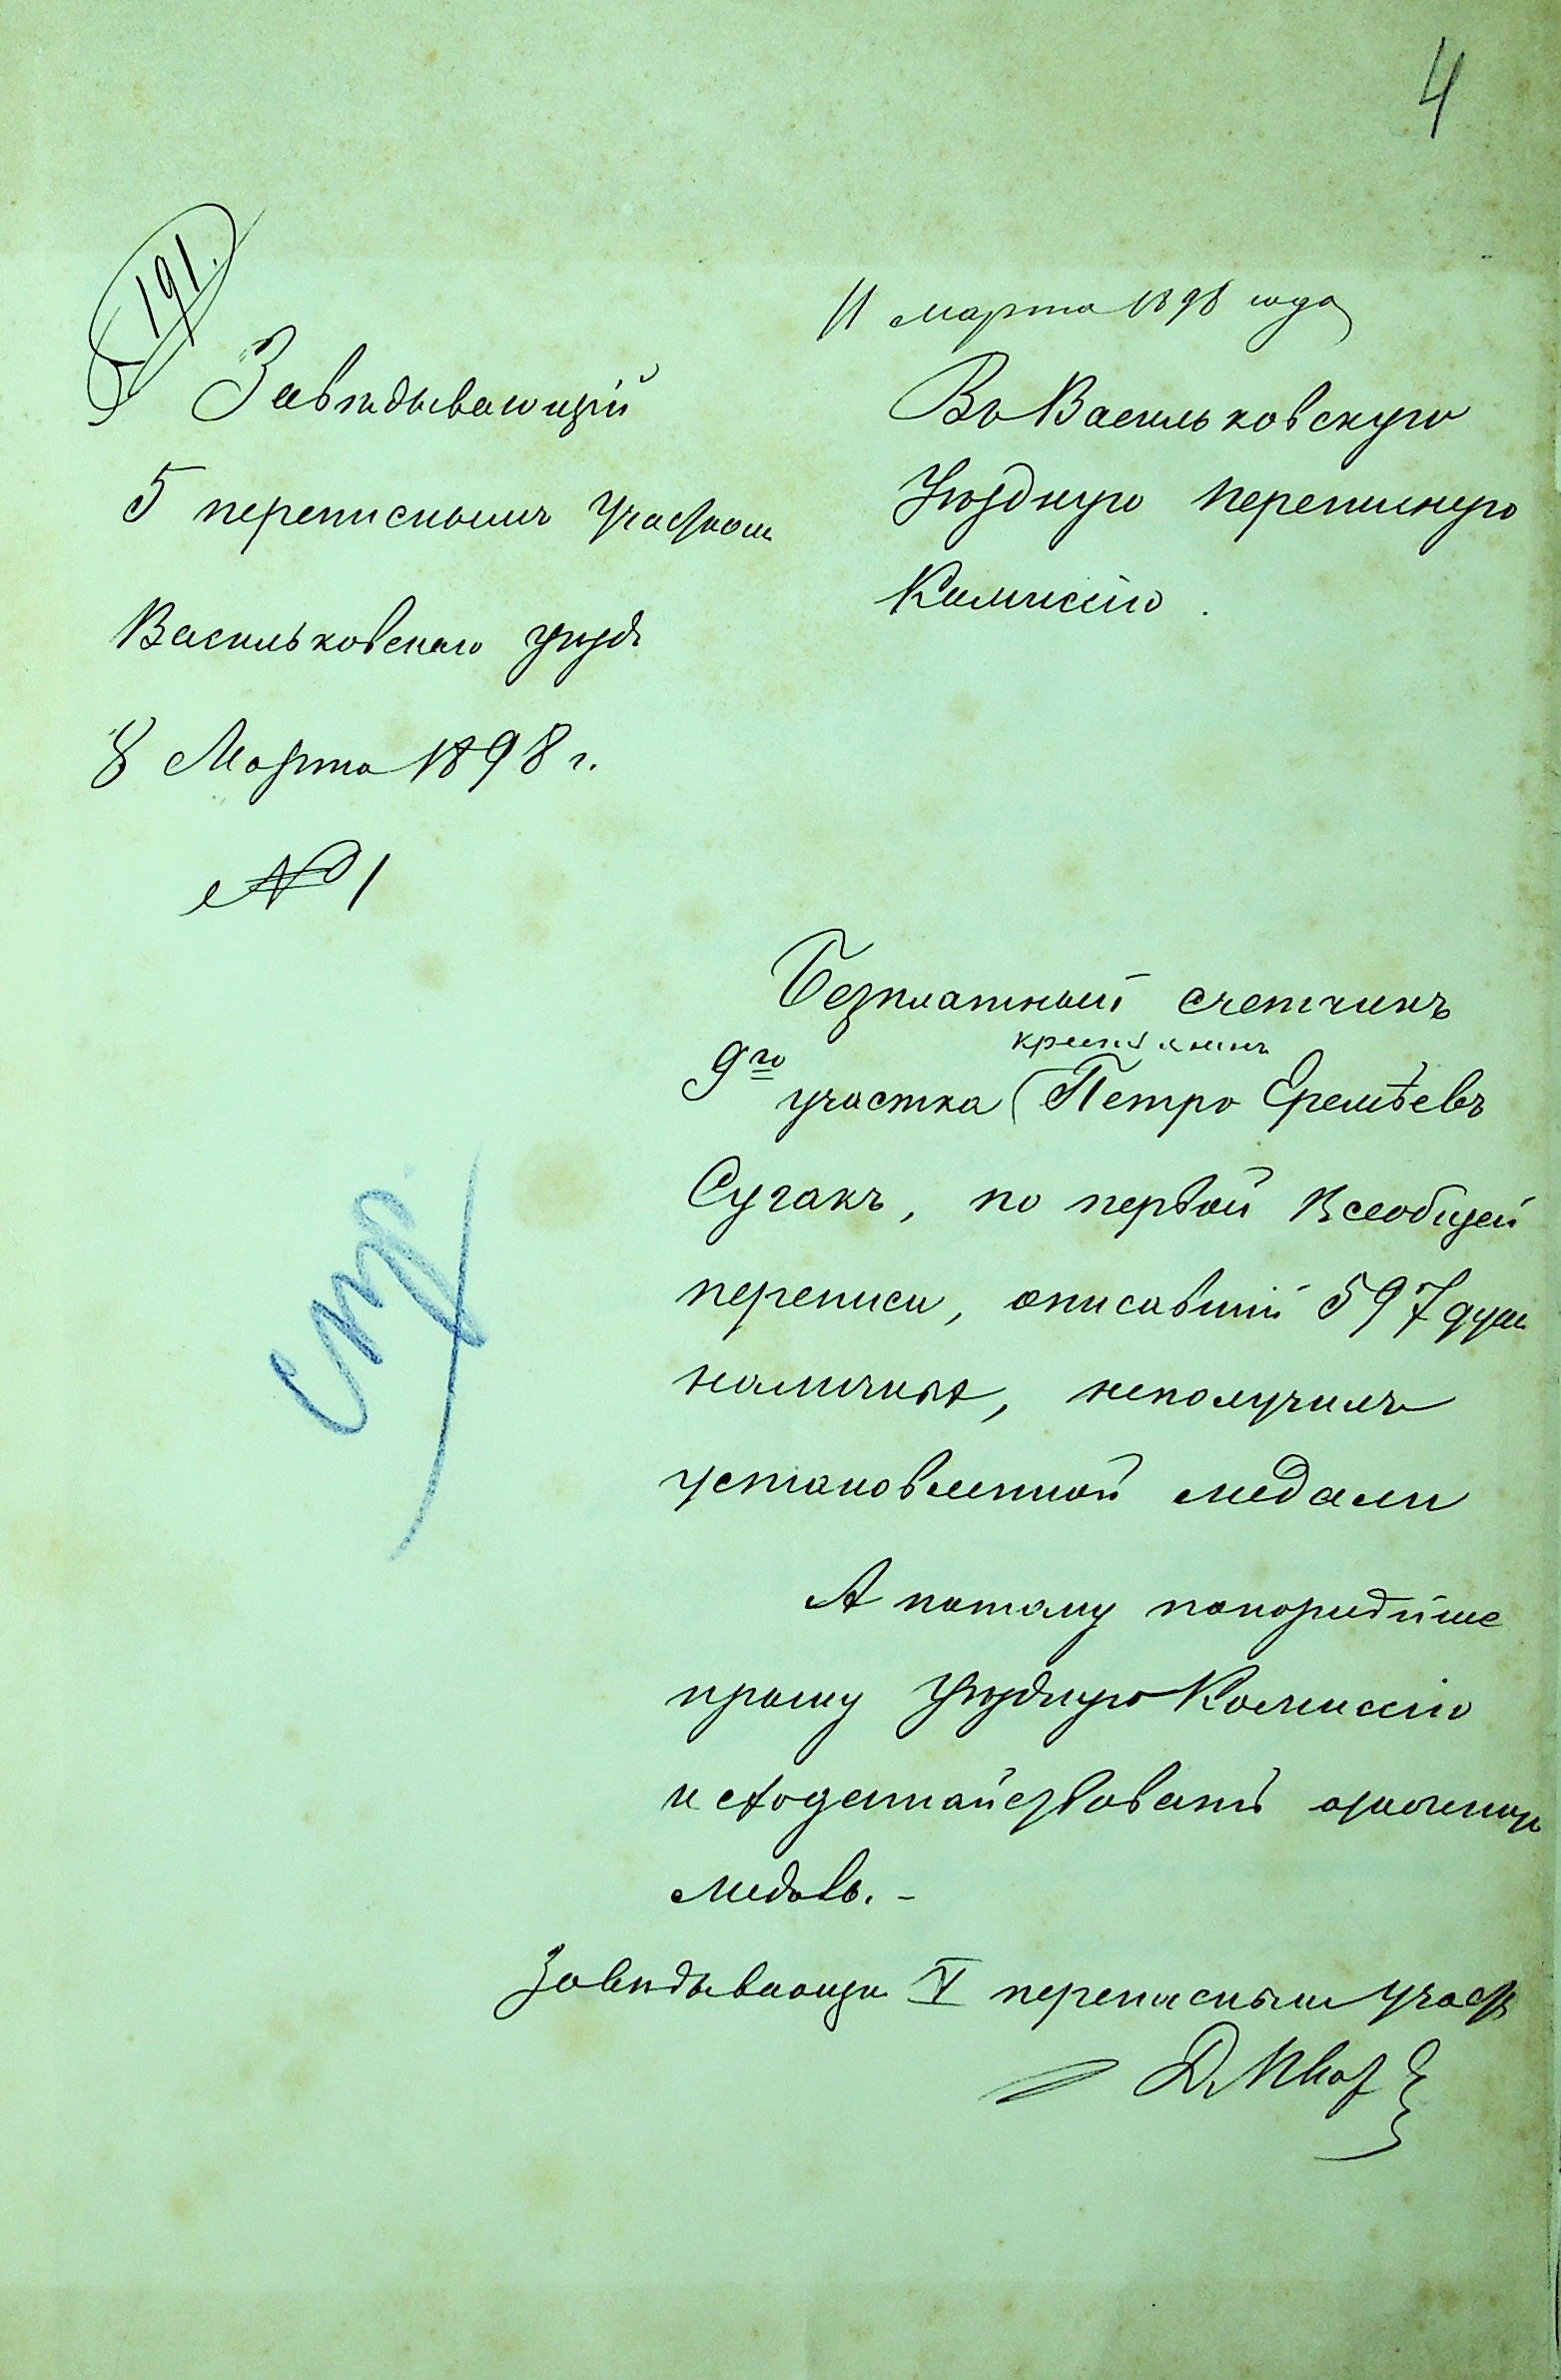 4
191.
Завѣдывающій
5 переписнымъ Участком
Васильковскаго уѣзд
8 Марта 1898 г.
№ 1
11 марта 1898 года
Въ Васильковскую
Уѣздную переписную
Коммиссію.
Безплатный счетчикъ
крестьянинъ
9го участка Петро Еремѣевъ
Сугакъ, по первой Всеобщей
переписи, описавшій 597 душ
наличныхъ, неполучилъ
установленной медали
А потому покорнѣйше
прошу Уѣздную Коммиссію
исходатайствовать
медаль. -
Завѣдывающій V переписным Участ
стр.